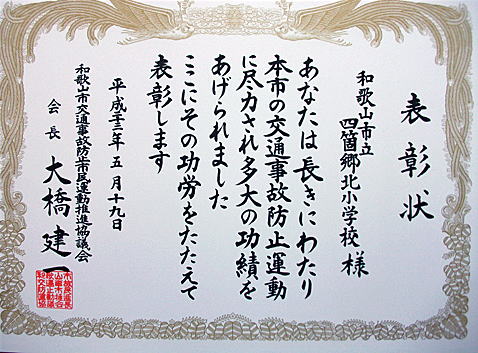 表彰状
和歌山市立
四箇郷北小学校 様
あなたは長きにわたり
本市の交通事故防止運動
に尽力され多大の功績を
あげられました
ここにその功労をたたえて
表彰します
平成二十三年五月十九日
和歌山市交通事故防止市民運動推進協議会
会長 大橋建一